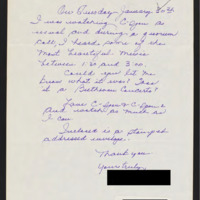 On Tuesday January 30th
I was watching C-Span as
usual and during a quorum
call, I heard some of the
most beautiful music
between 1:30 and 3:00.
Could you let me
know what it was? Was
it a Beethoven Concerto?
I love C-Span & C-Span 2
and watch as much as
I can.
Inclosed is a stamped
addressed envelope.
Thank you
Yours truly,